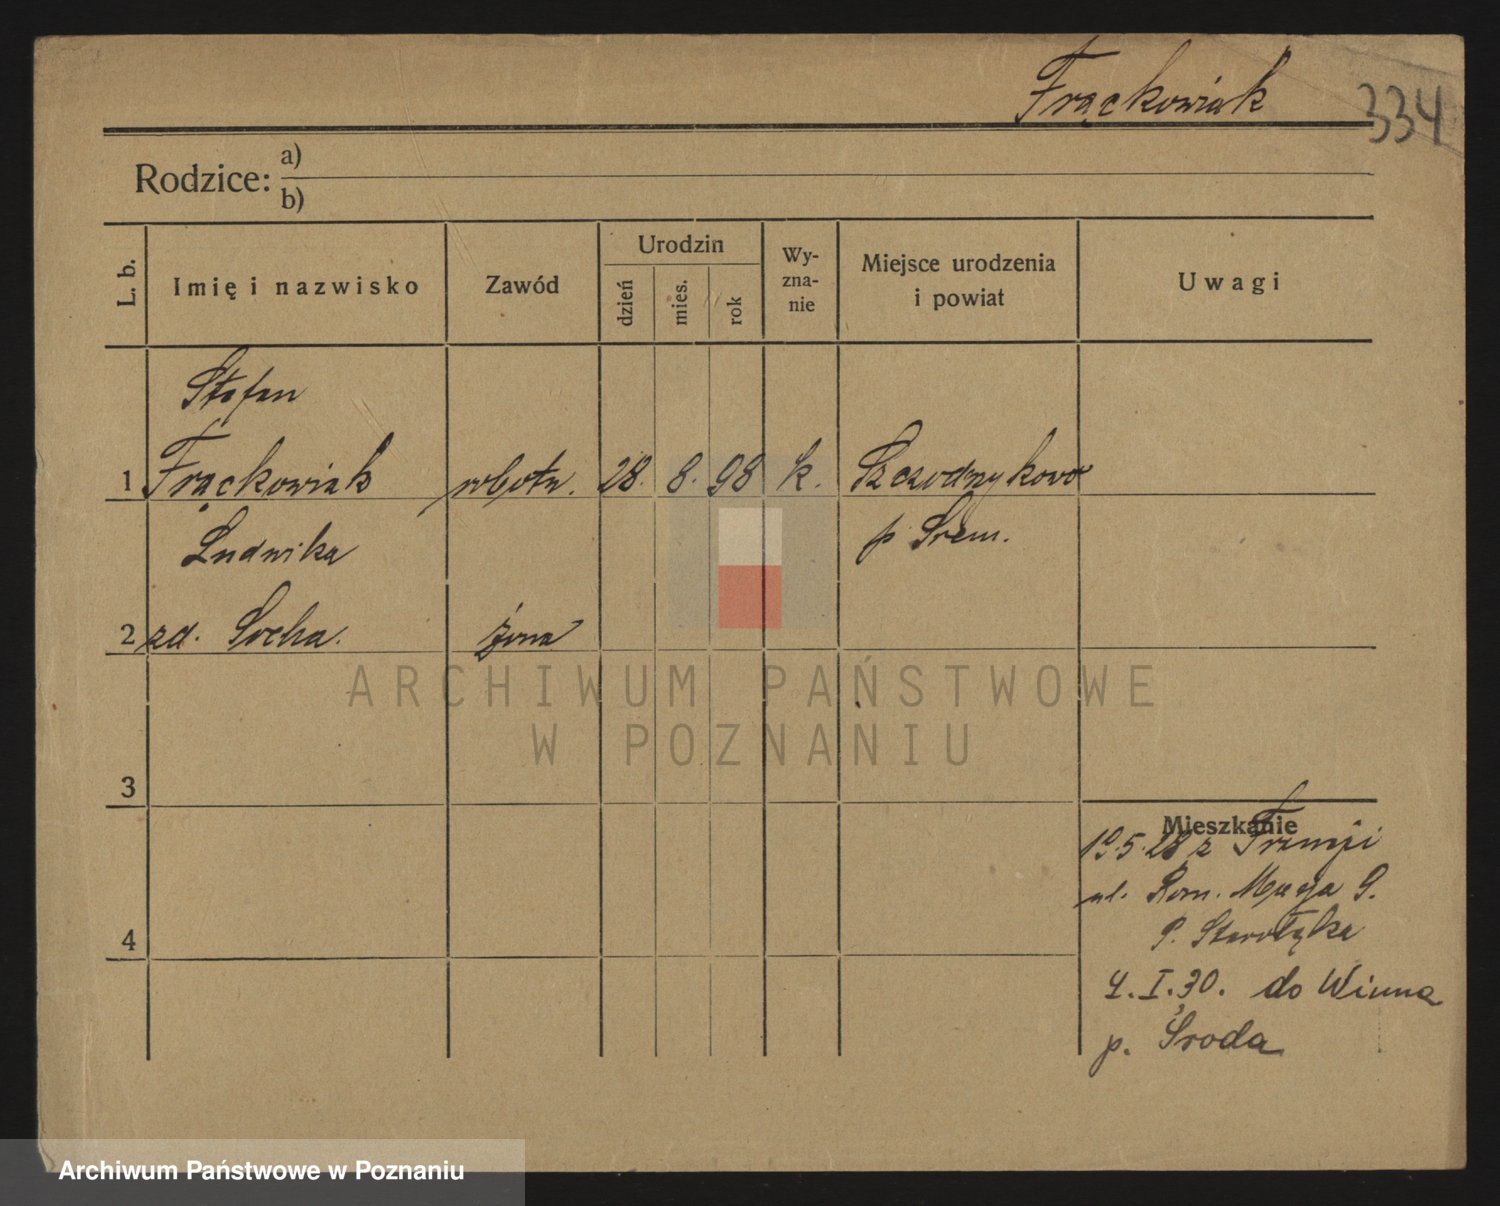 Frąckowiak
334
Rodzice: a)
b)
L. b.
Imię i nazwisko
Zawód
Urodzin
dzień
mies.
rok
Wy-
zna-
nie
Miejsce urodzenia
i powiat
Uwagi
Stefan
1 Frąckowiak robotn. 28. 8. 98 k. Szczodrzykowo
p Śrem.
Ludwika
2 zd. Socha. żona
3
4
Mieszkanie
5.28 z Francji
ul. Rom. Maya
P. Starołęka
4.I.30. do Winna
p. Środa
ARCHIWUM PAŃSTWOWE
W POZNANIU
Archiwum Państwowe w Poznaniu